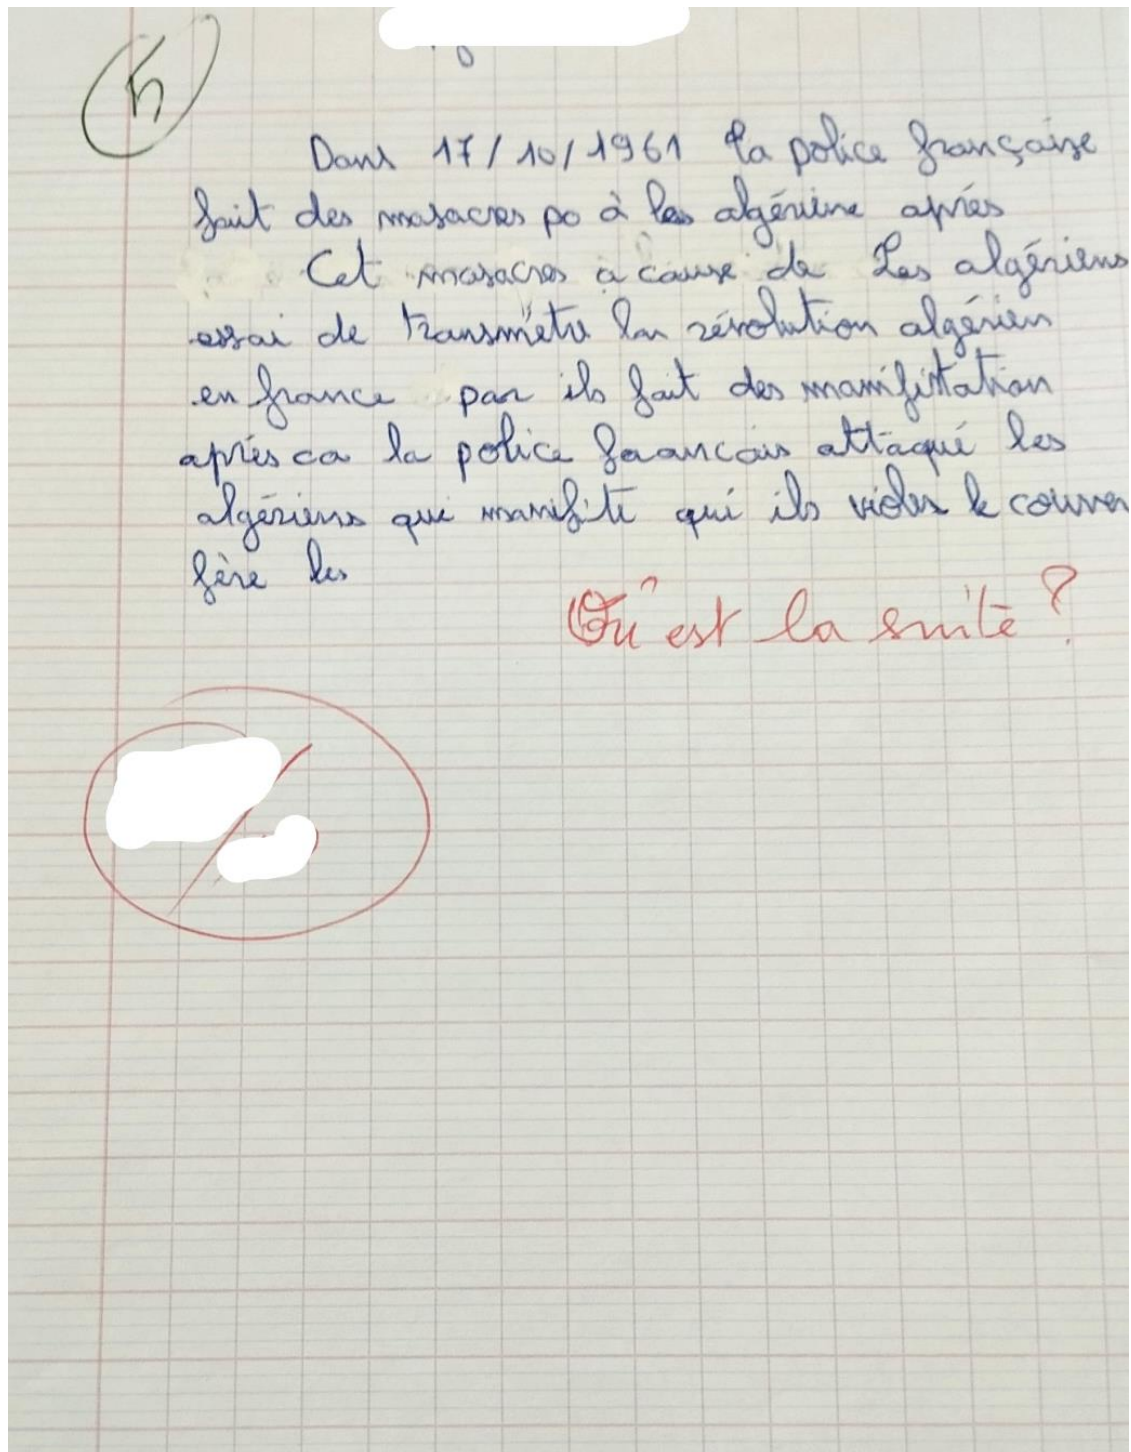 5
Dans 17/10/1961 la police françaize
fait des masacres po à les algériéne aprés
Cet masacres a cause de Les algériens
essai de transmétre la révolution algérien
en france par ils fait des manifistation
aprés ca la police francais attaqué les
algériens qui manifite qui ils violes le couver
fère les
Où est la suite ?